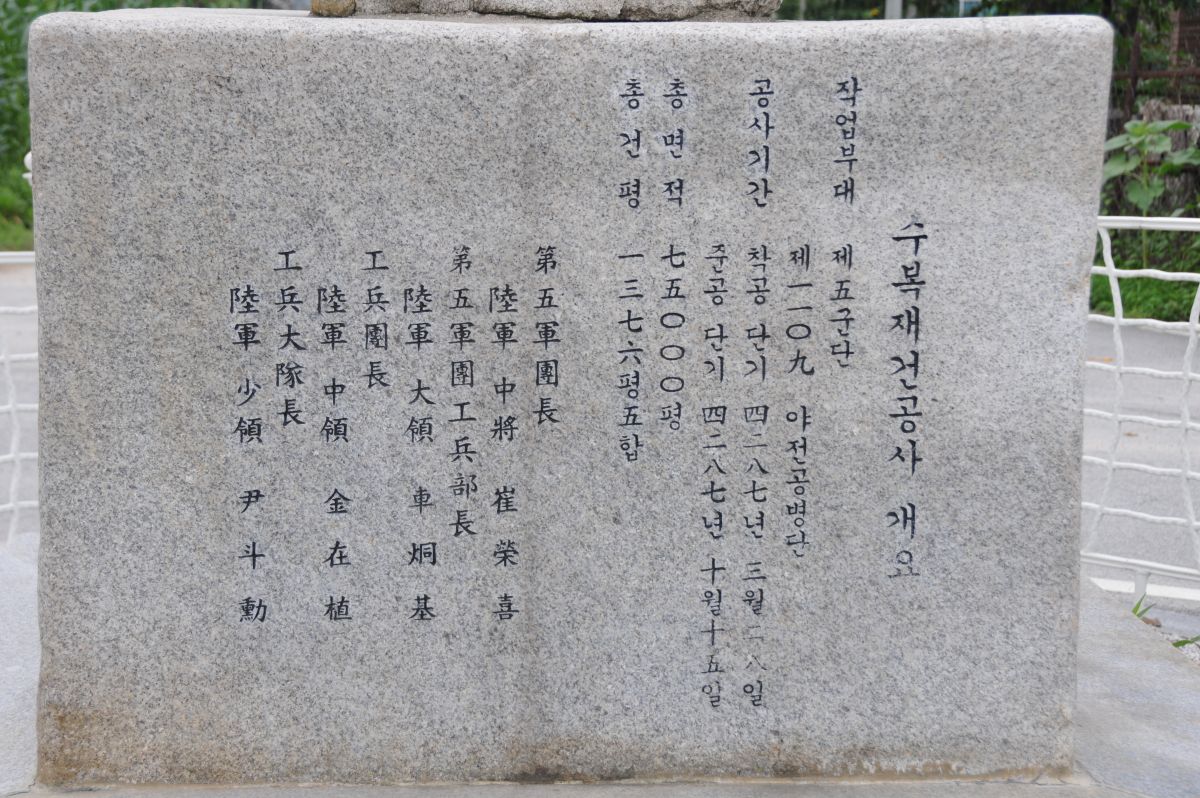 수복재건공사 개요
작업부대 제五군단
제一一〇九 야전공병단
공사기간 착공 단기 四二八七년 三월 二八일
준공 단기 四二八七년 十월十五일
총면적 七五〇〇〇평
총건평 一三七六평五합
第五軍團長
陸軍 中將 崔榮喜
第五軍團工兵部長
陸軍 大領 車炯基
工兵團長
陸軍 中領 金在植
工兵大隊長
陸軍 少領 尹斗勳